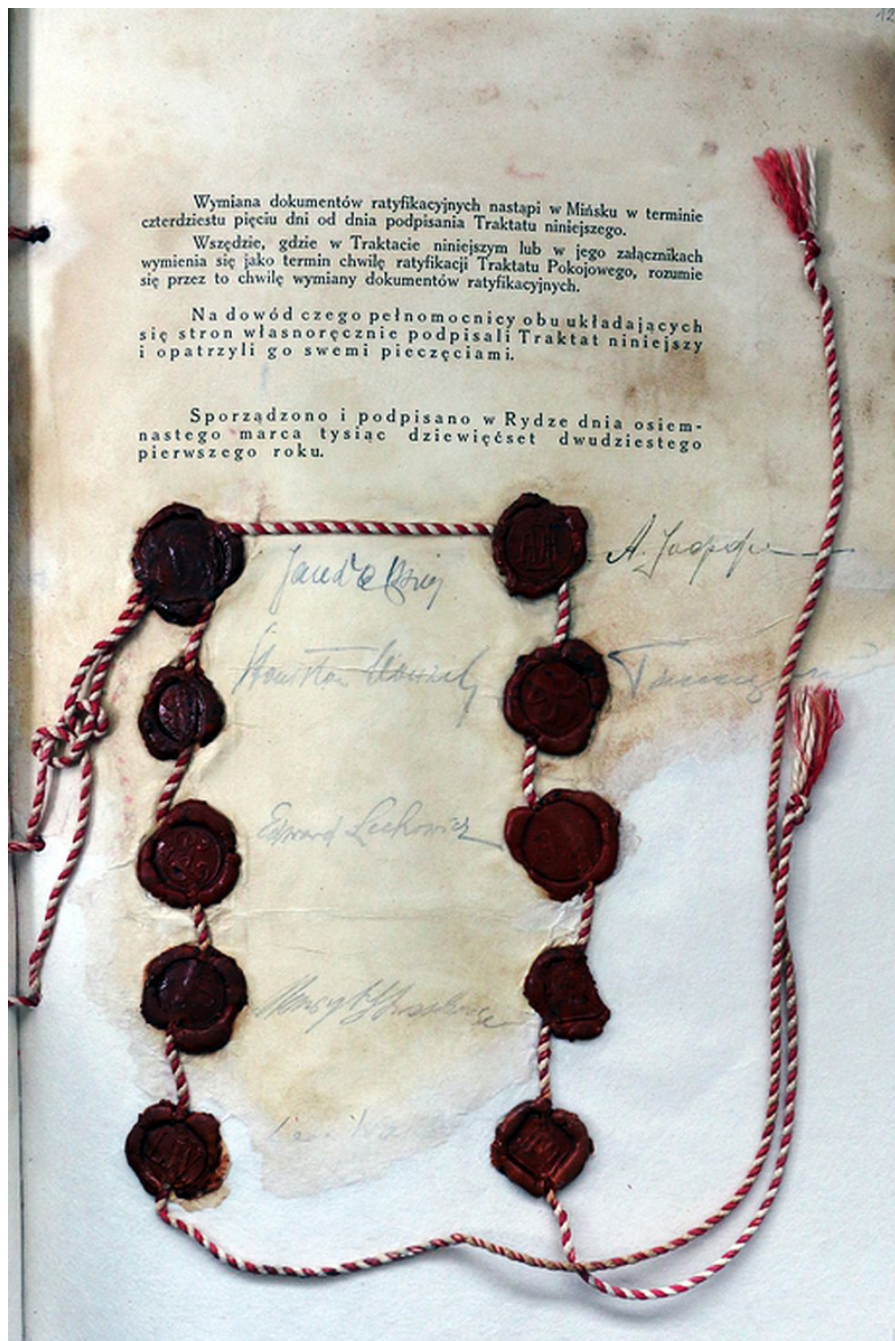 12
Wymiana dokumentów ratyfikacyjnych nastąpi w Mińsku w terminie
czterdziestu pięciu dni od dnia podpisania Traktatu niniejszego.
Wszędzie, gdzie w Traktacie niniejszym lub w jego załącznikach
wymienia się jako termin chwilę ratyfikacji Traktatu Pokojowego, rozumie
się przez to chwilę wymiany dokumentów ratyfikacyjnych.
Na dowód czego pełnomocnicy obu układających
się stron własnoręcznie podpisali Traktat niniejszy
i opatrzyli go swemi pieczęciami.
Sporządzono i podpisano w Rydze dnia osiem-
nastego marca tysiąc dziewięćset dwudziestego
pierwszego roku.
A.
Stanisław
Edward Lechowicz